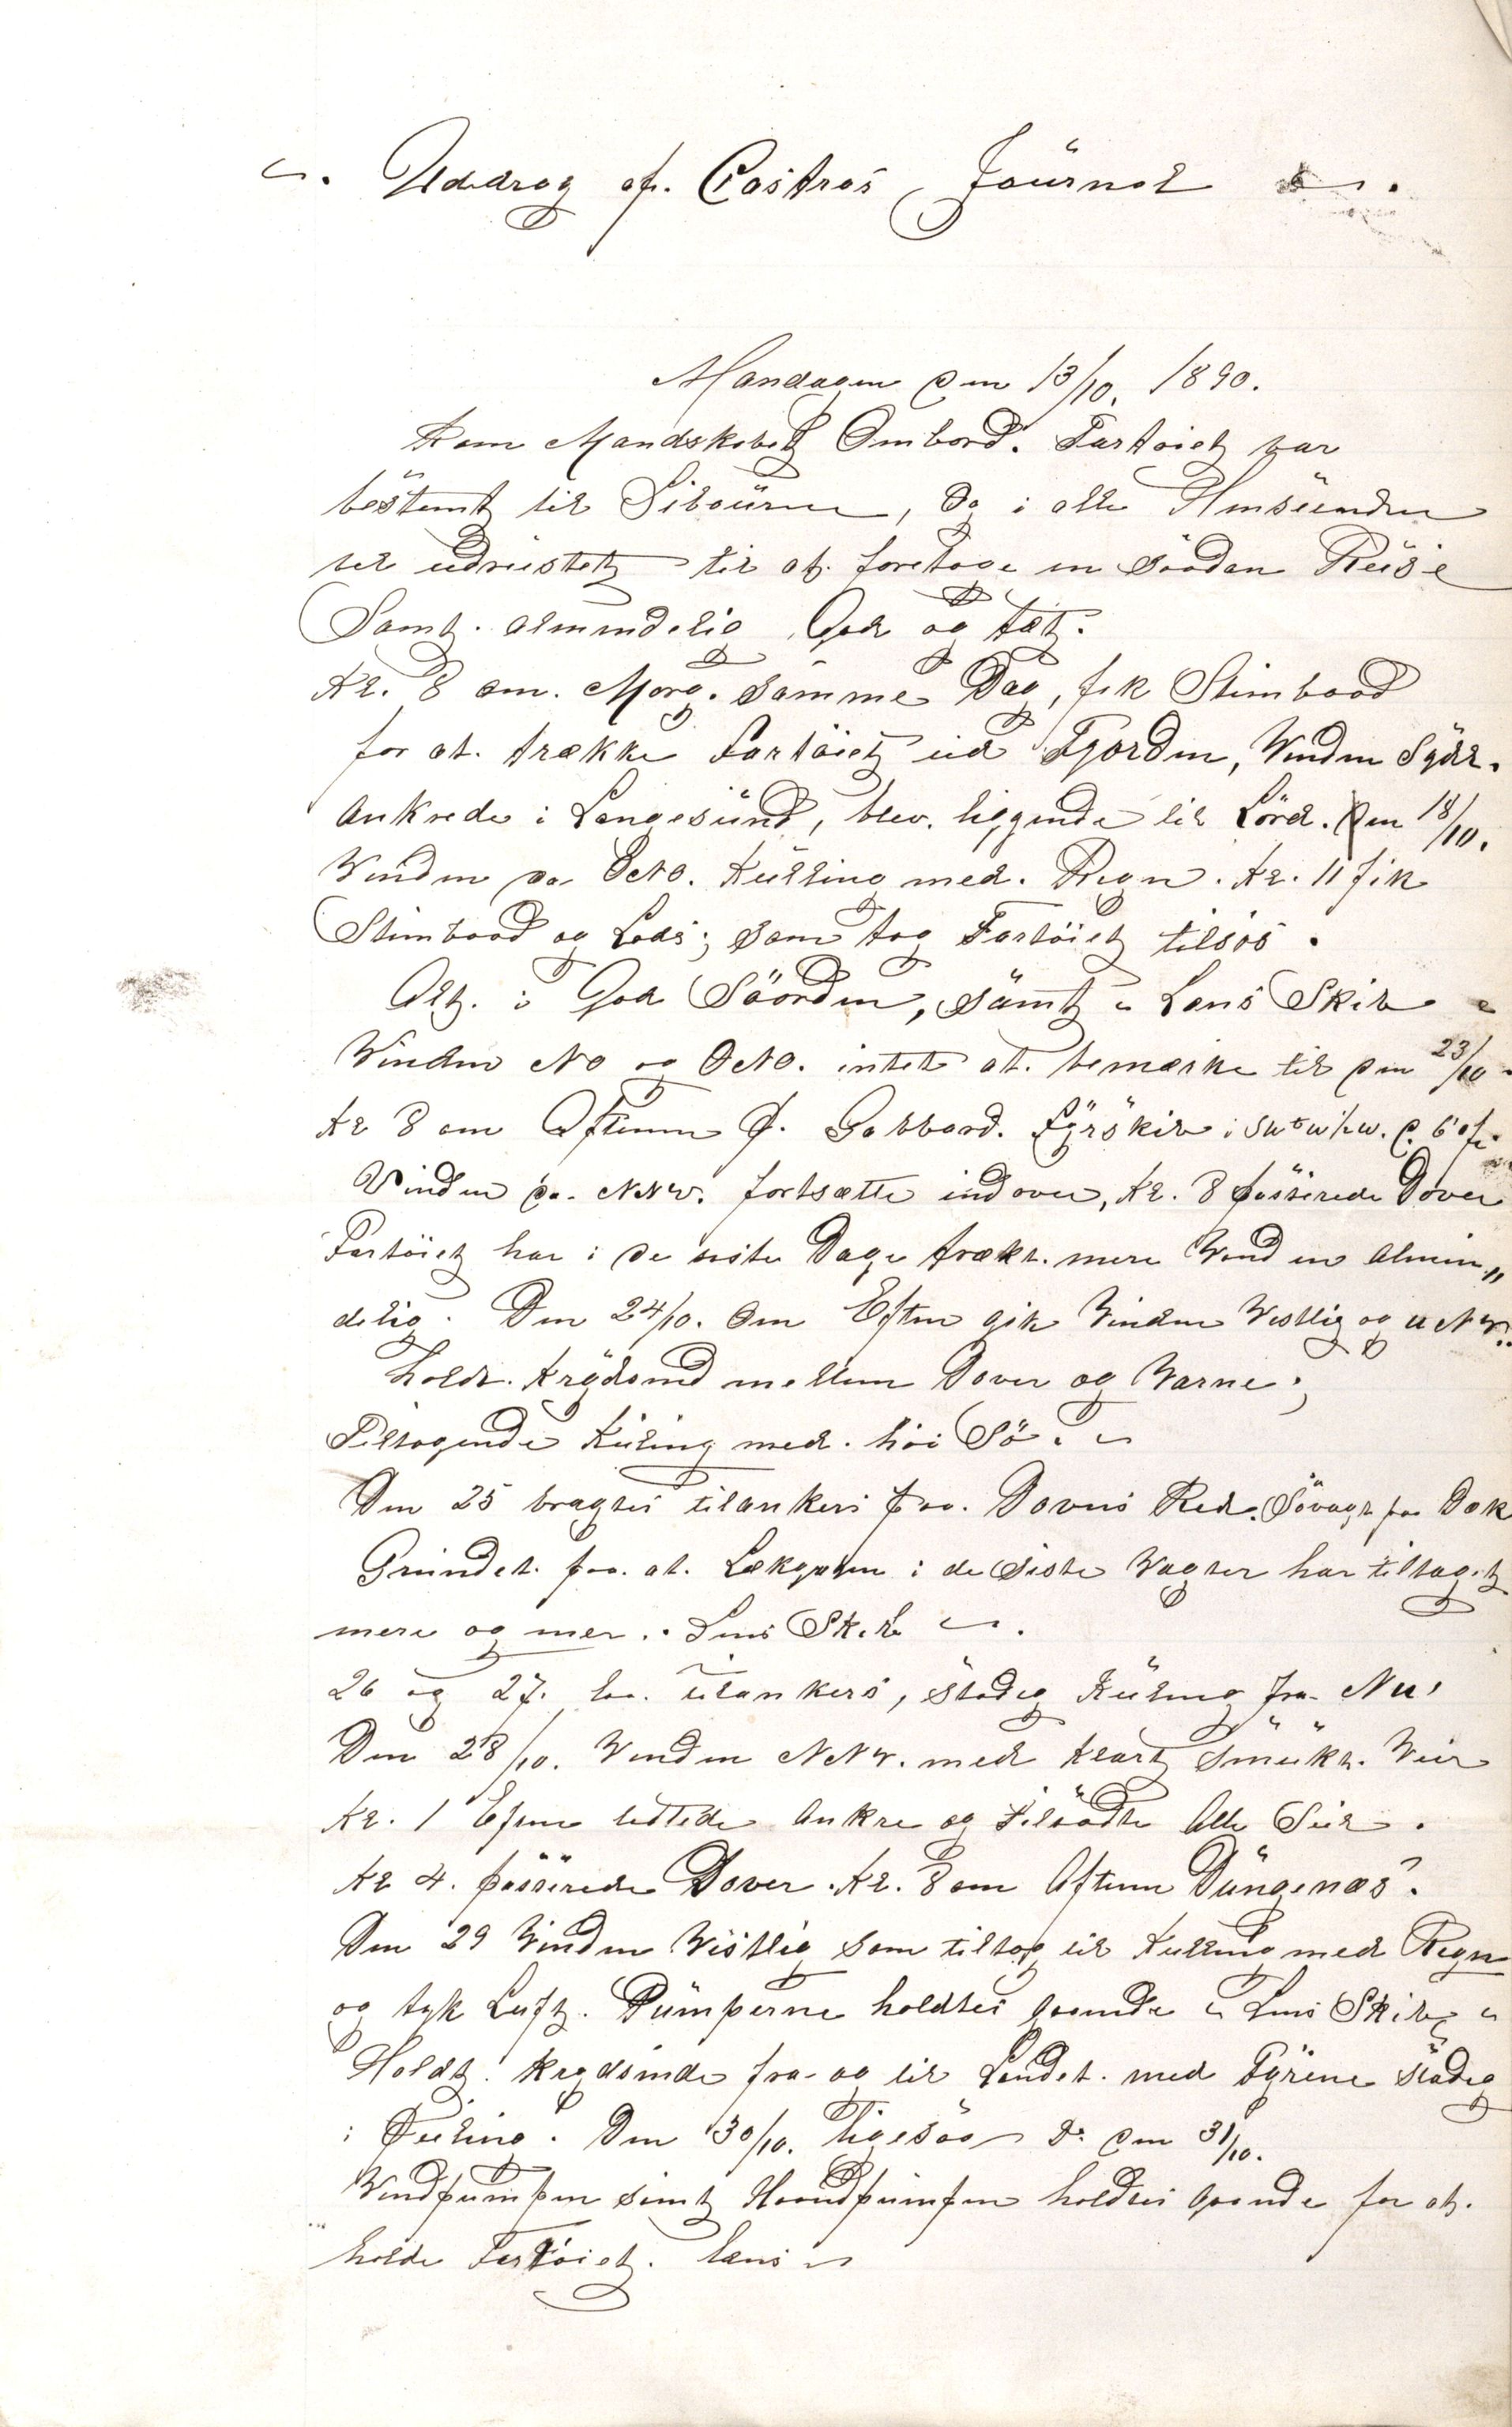 Uddrag af. Castros Journal
Mandagen Den 13/10. 1890.
Kom Mandskabet Ombord. Fartøiet var
bestemt til Libourne, Og i alle Hensender
vel udrustet til at. foretage en saadan Reise
Samt. almindelig God og tæt.
Kl. 8 om. Morg. samme Dag, fik Stimbaad
for at. trække Fartøiet ud Fjorden, Vinden Sydl.
Ankrede i Langesund, blev. liggende til Lörd. Den 18/10.
Vinden Da ONO. Kulling med. Regn. Kl. 11 fik
Stimbaad og Lods; som tog Fartøiet tilsös.
Alt. i God Söorden, samt Lens Skib
Vinden NO og ONO. intet at. bemærke til Den 23/10.
Kl 8 om Aftenen P. Gabbard. Fyrskib i SWtW½W. D. 6' af.
Vinden Da. NNW. fortsatte indover, Kl. 8 passerede Dover
Fartöiet har i De siste Dage trækt. mere Vand en Almin„
delig. Den 24/10. Om Eftm gik Vinden Vestlig og WNW.
holdt. Krydsend mellem Dover og Varne;
Tiltagende Kuling med. höi Sö.
Den 25 bragtes tilankers paa. Dovers Red. Sövagt paa Dæk
Grundet. paa. at. Lækagen i de Siste Vagter har tiltaget
mere og mer.. Lens Skib.
26 og 27. laa. tilankers, stadig Kuling fra. NW.
Den 28/10. Vinden NNW. med klart smukt. Veir
Kl. 1 Efm lettede Ankre og tilsatte Alle Seil.
Kl 4. passerede Dover. Kl. 8 om Aftenen Dungenæs.
Den 29 Vinden Vestlig som tiltog til Kulling med Regn
og tyk Luft. Pumperne holdtes gaaende Lens Skib
Holdt. krydsende fra og til Landet. med Fyrene stadig
i Peiling. Den 30/10. ligesaa Do Den 31/10.
Vindpumpen samt Haandpumpen holdtes gaaende for at.
holde Fartöiet. læns